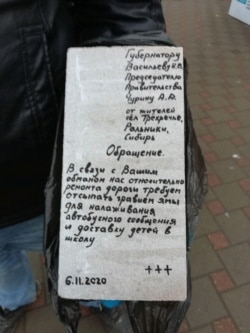 Губернатору
Васильеву И.В.
Председателю
Правительства
Чурину А.А.
от жителей
сёл Трехречье,
Рольники,
Сибирь
Обращение.
В связи с Вашим
обманом нас относительно
ремонта дороги требуем
отсыпать гравием ямы
для налаживания
автобусного сообщения
и доставку детей в
школу
+++
6.11.2020